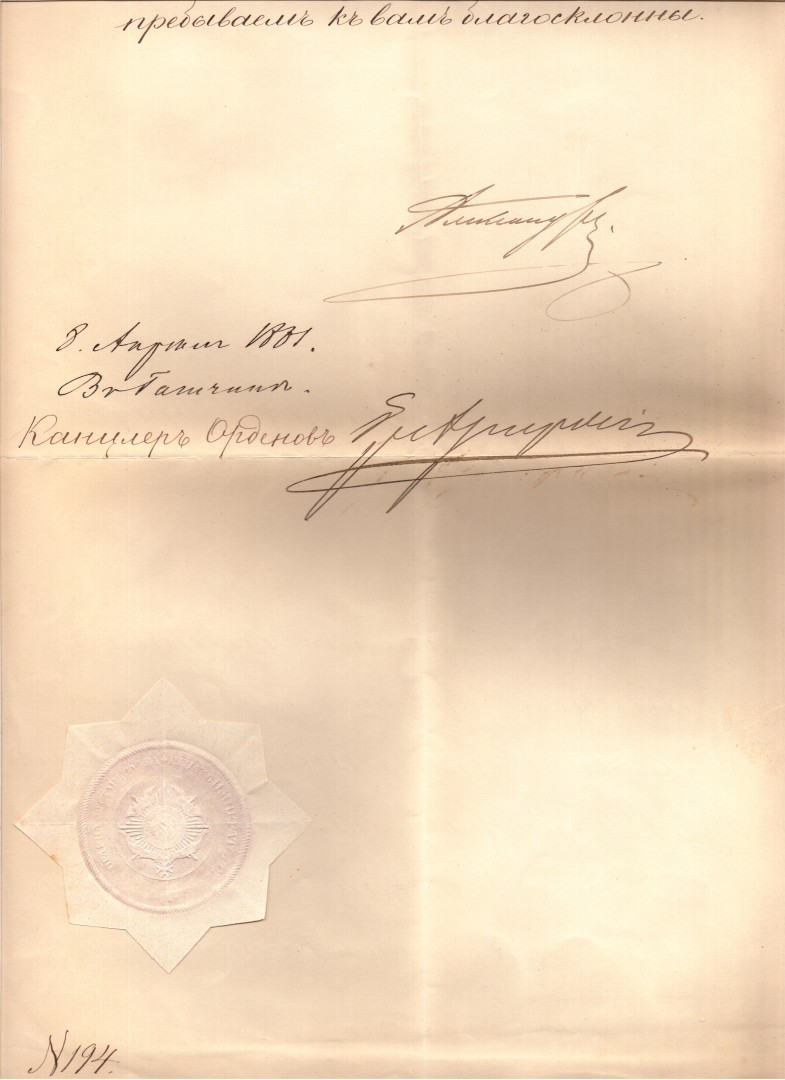 пребываемъ къ вамъ благосклонны.
Александръ.
8. Апрѣля 1881.
Въ Гатчинѣ.
Канцлеръ Орденовъ
N 194.